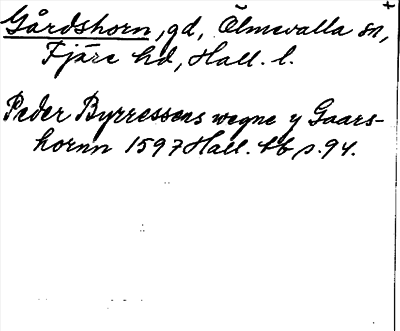 Gårdshorn, gd, Ölmevalla sn,
Fjäre hd, Hall. l.
Peder Byrressøns wegne y Gaars-
hornn 1597 Hall. lb s. 94.